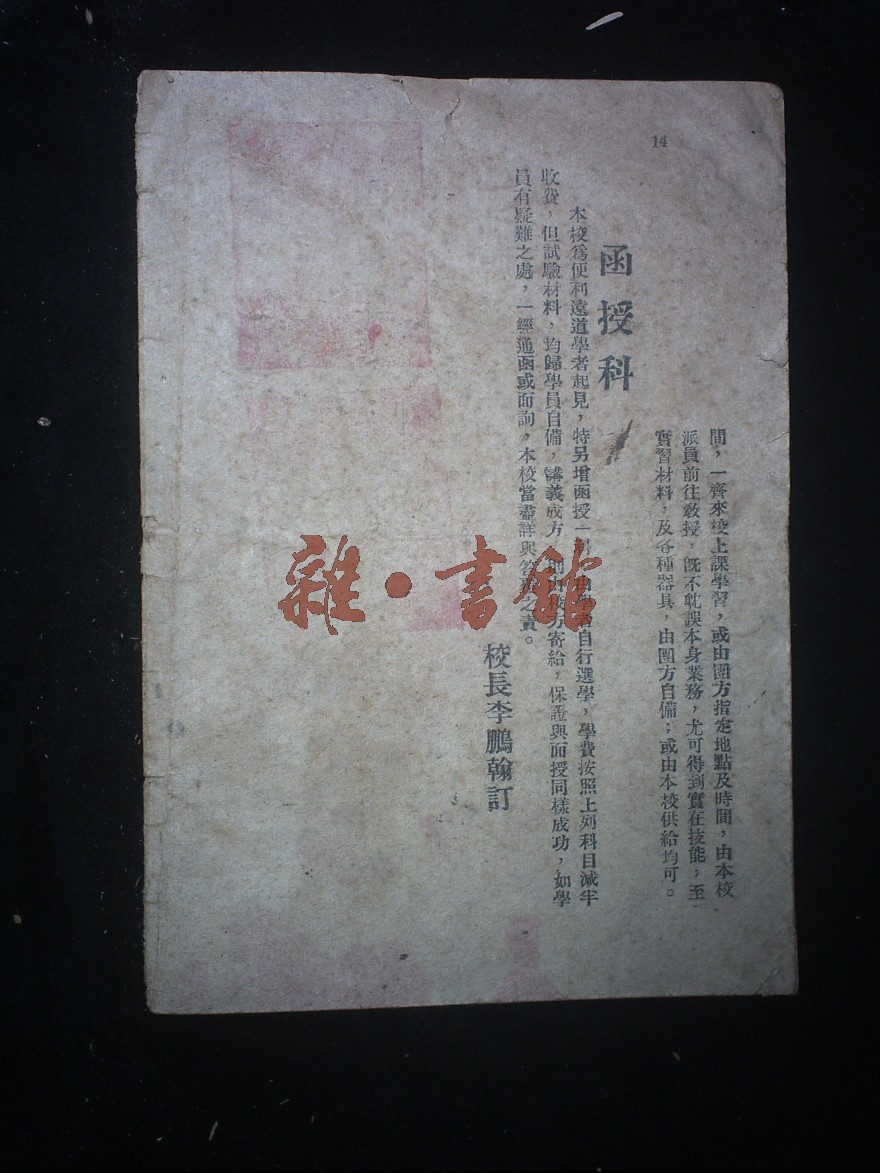 14
間，一齊來校上課學習，或由團方指定地點及時間，由本校
派員前往敎授，旣不躭誤本身業務，尤可得到實在技能，至
實習材料，及各種器具，由團方自備；或由本校供給均可。
函授科
本校爲便利遠道學者起見，特另增函授一科，由學者自行選學，學費按照上列科目減半
收費，但試驗材料，均歸學員自備，講義成方，則由校方寄給，保證與面授同樣成功，如學
員有疑難之處，一經通函或面詢，本校當盡詳與答覆之責。
校長李鵬翰訂
雜·書館